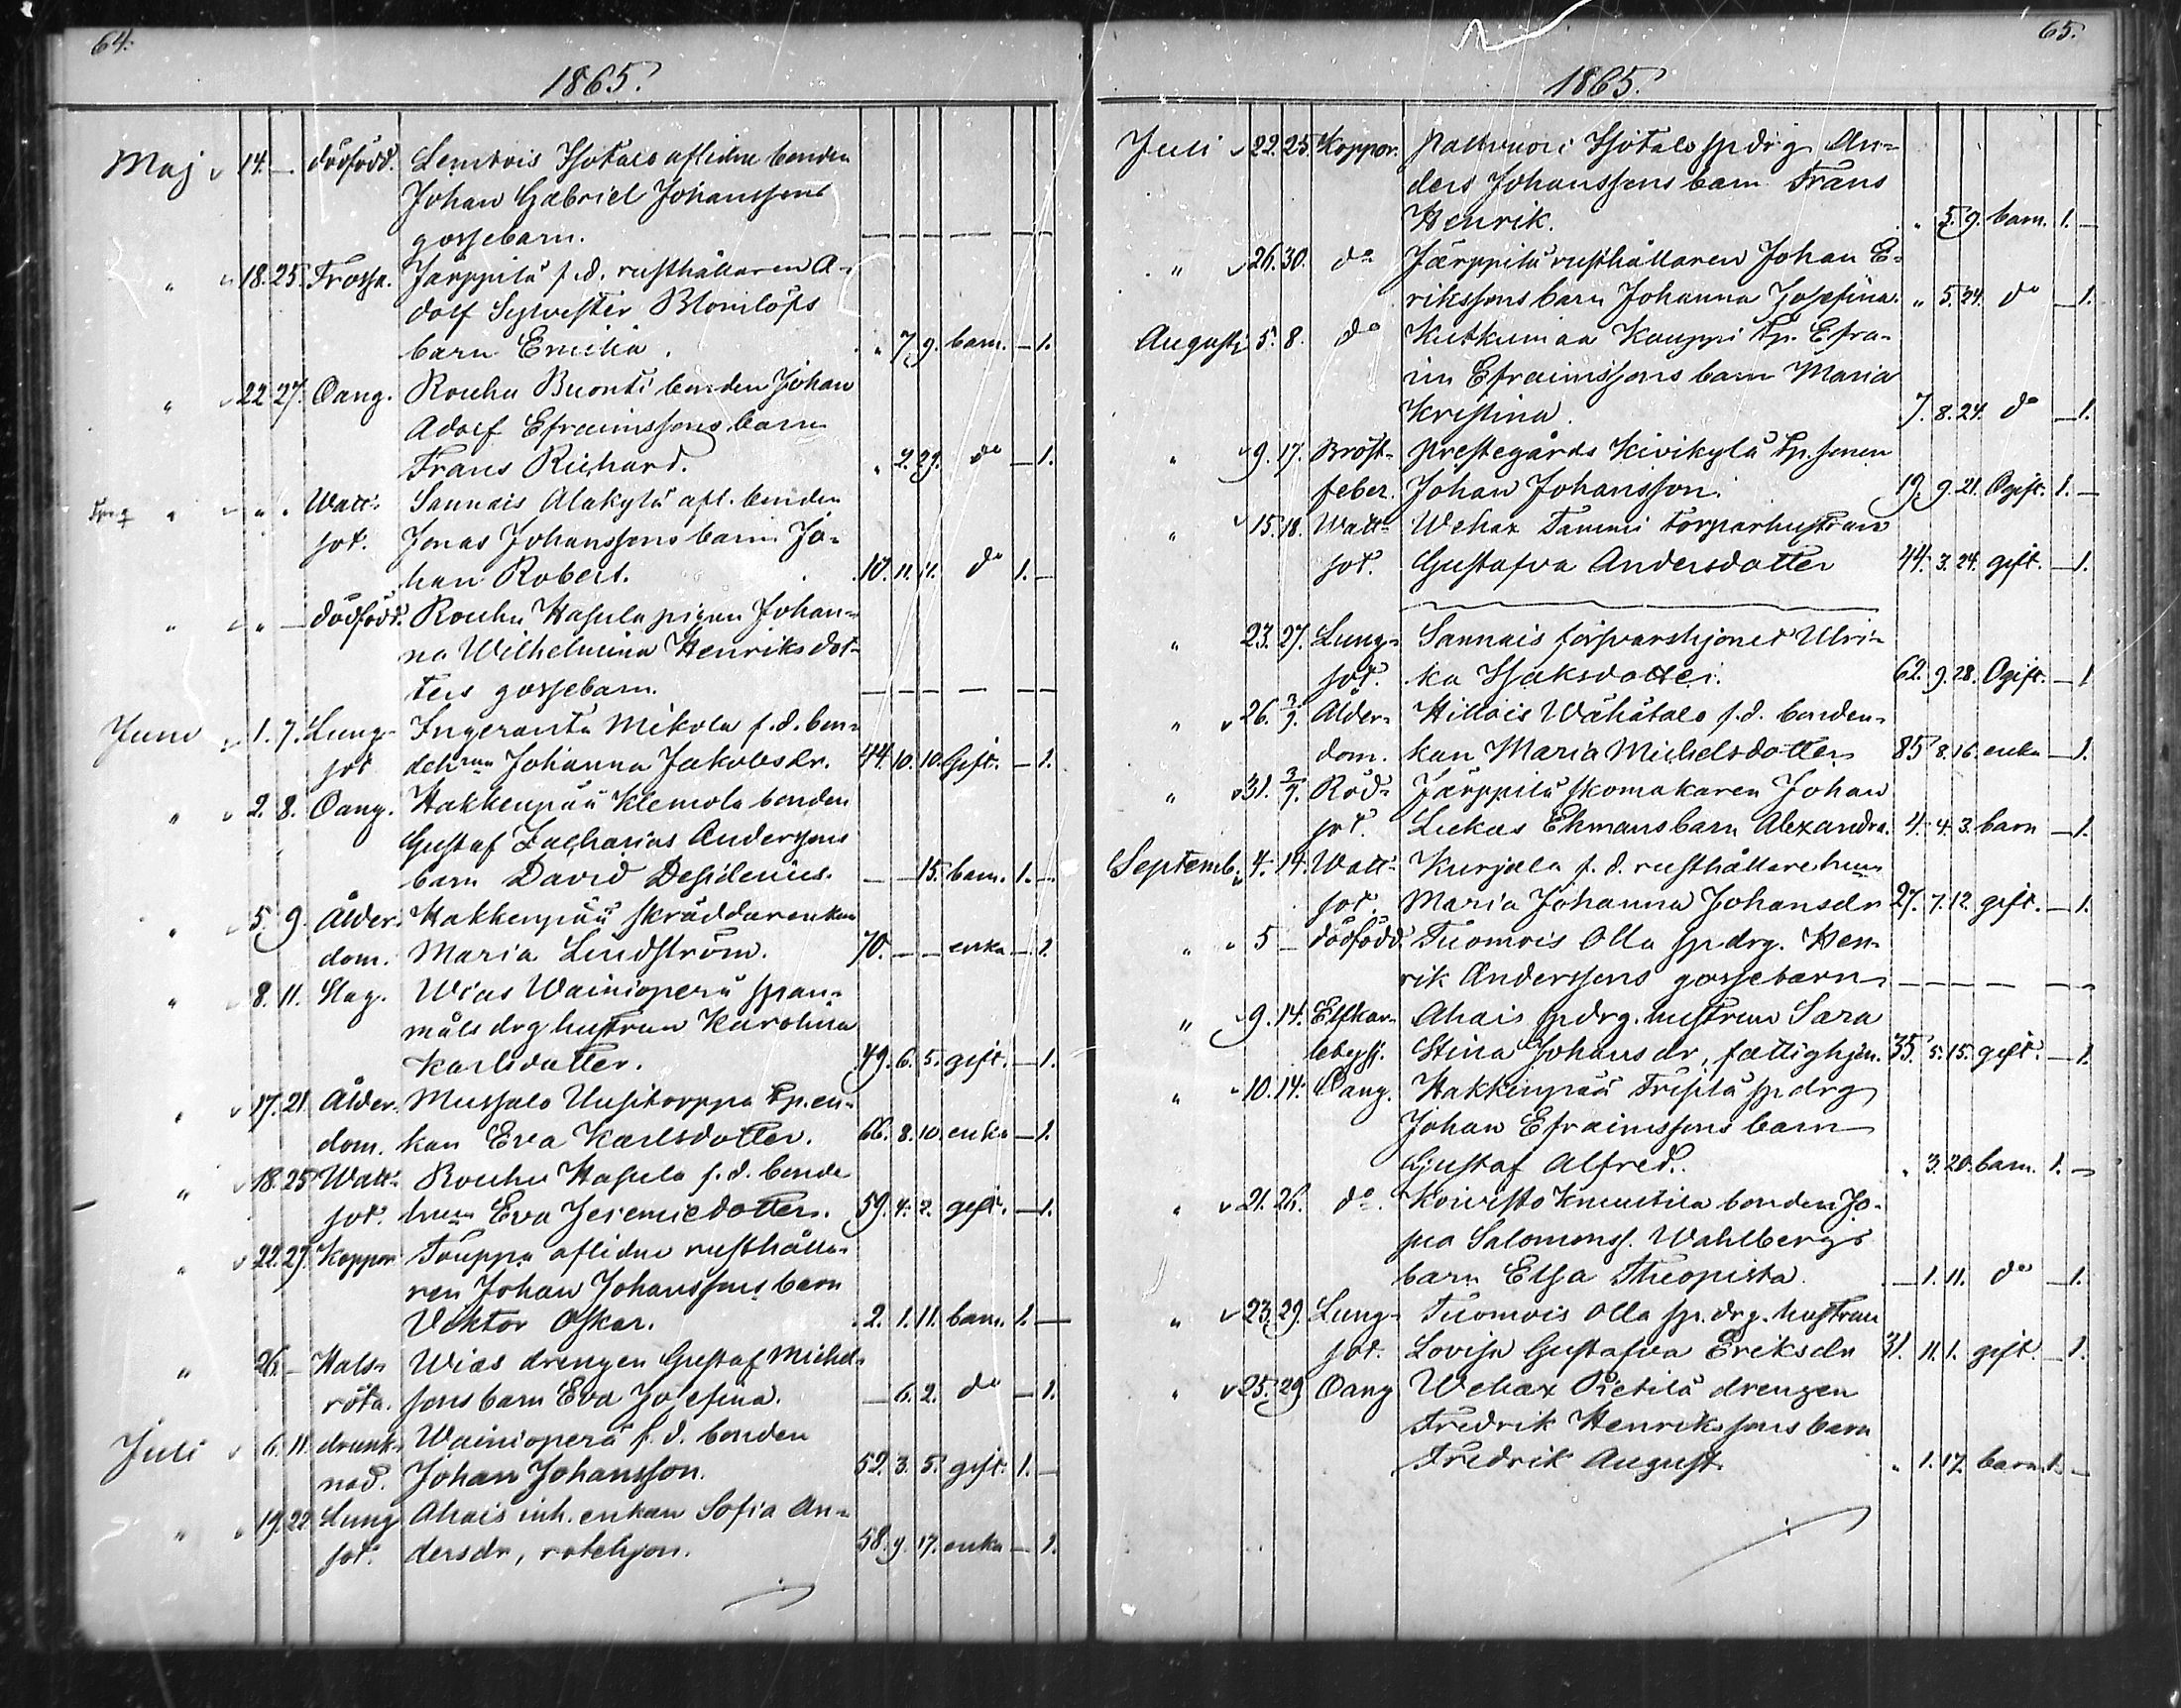 64.
1865.
Maj 14. — dödfödd. Lembois Isotalo aflidne bonden
Johan Gabriel Johanssons
gossebarn. — — — — — —
" 18. 25. Trossk. Järppilä f.d. rusthållaren A-
dolf Sylvester Blomlöfs
barn Emilia. " 7. 9. barn. — 1.
" 22. 27. Oang. Rouhu Buonti bonden Johan
Adolf Efraimssons barn
Frans Richard. " 2. 29. do — 1.
" " " Watt- Sannais Alakylä afl. bonden
sot. Jonas Johanssons barn Jo-
han Robert. 10. 11. 11. do 1. —
" " — dödfödd. Rouhu Hassula pigan Johan-
na Wilhelmina Henriksdot-
ters gossebarn. — — — — — —
Juni 1. 7. Lung- Ingeranta Mikola f.d. bon-
sot dehrun Johanna Jakobsdr. 44. 10. 10. Gift. — 1.
" 2. 8. Oang. Hakkenpää Klemola bonden
Gustaf Zacharias Anderssons
barn David Desiderius. — — 15. barn. 1. —
" 5. 9. Ålder- Hakkenpää skräddarenkan
dom. Maria Lindström. 70. — — enka — 1.
" 8. 11. Slag. Wias Wainioperä span-
måls drg hustrun Karolina
Karlsdotter. 49. 6. 5. gift. — 1.
" 17. 21. Ålder- Mussalo Uusitorppa tp.en-
dom. kan Eva Karlsdotter. 66. 8. 10. enka — 1.
" 18. 25. Watt- Rouhu Hassula f.d. bonde
sot. hun Eva Jeremiedotter. 59. 4. 2. gift. — 1.
" 22. 29. Koppor Touppa aflidne rusthålla-
ren Johan Johanssons barn
Viktor Oskar. 2. 1. 11. barn. 1. —
" 26. — Hals- Wias drengen Gustaf Michel-
röta. sons barn Eva Josefina. — 6. 2. do — 1.
Juli 6. 11. drunk- Wainioperä f.d. bonden
nad. Johan Johansson. 52. 3. 5. gift. 1. —
" 19. 22. Lung Ahais inh. enkan Sofia An-
sot. dersdr, rotehjon. 58. 9. 17. enka — 1.
65.
1865.
Juli 22. 25. Koppor. Palkvuori Isotalo sp drg An-
ders Johanssons barn Frans
Henrik. " 5. 9. barn. 1. —
" 26. 30. do Järppilä rusthållaren Johan E-
rikssons barn Johanna Josefina. " 5. 24. do — 1.
Augusti 5. 8. do Kutkumaa Kauppi tp. Efra-
im Efraimssons barn Maria
Kristina. 7. 8. 24. do — 1.
" 9. 17. Bröst- Prestegårds Kivikylä tp. sonen
feber. Johan Johansson. 19. 9. 21. Ogift. 1. —
" 15. 18. Watt- Wehax Tammi torparhustrun
sot. Gustafva Andersdotter 44. 3. 24. gift. — 1.
" 23. 27. Lung- Sannais försvarshjonet Ulri-
sot. ka Isaksdotter. 62. 9. 28. Ogift. — 1
" 26. 3/9. Ålder- Hillois Wähätalo f.d. bonden-
dom. kan Maria Michelsdotter 85 8. 16. enka — 1.
" 31. 3/9. Röd- Järppilä skomakaren Johan
sot. Lukas Ekmans barn Alexandra. 4. 4. 3. barn — 1.
Septemb. 4. 14. Watt- Kurjala f.d. rusthållare hun
sot. Maria Johanna Johansdr 27. 7. 12. gift. — 1.
" 5 — dödfödd Tuomois Olla sp drg. Hen-
rik Anderssons gossebarn — — — — — —
" 9. 14. Elfkar- Ahais sp drg. hustrun Sara
lebysj. Stina Johansdr, fattighjon. 35. 5. 15. gift. — 1.
" 10. 14. Oang. Hakkenpää Fresilä sp drg
Johan Efraimssons barn
Gustaf Alfred. " 3. 20. barn. 1. —
" 21. 26. do. Koivisto Knuutila bonden Jo-
sua Salomonss. Wahlbergs
barn Elsa Theopista. — 1. 11. do — 1.
" 23. 29. Lung- Tuomois Olla sp. drg. hustrun
sot. Lovisa Gustafva Eriksdr 31. 11. 1. gift. — 1.
" 25. 29. Oang Wehax Pietilä drengen
Fredrik Henrikssons barn
Fredrik August. " 1. 17. barn 1. —